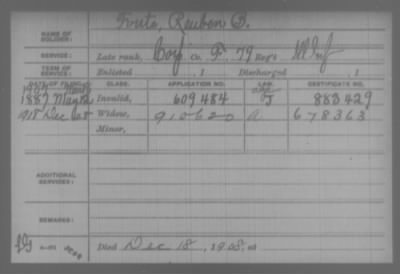 Reuben S.
NAME OF SOLDIER:
SERVICE: Late rank, Corp Co. F. 79 Reg't Ill Inf
TERM OF SERVICE: Enlisted , 1 Discharged , 1
DATE OF FILING. CLASS. APPLICATION NO. LAW. CERTIFICATE NO.
1887 Invalid, 609484 J 883429
1908 Dec Widow, 910620 a 678363
Minor,
ADDITIONAL SERVICES:
REMARKS:
Died Dec 18, 1908, at